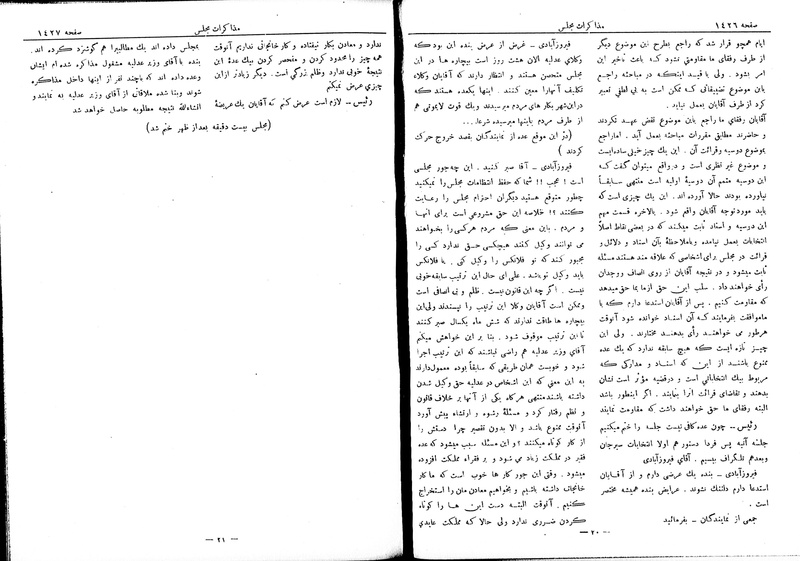 صفحه ۱۴۲۶
مذاکرات مجلس
ایام همچو قرار شد که راجع بطرح این موضوع دیگر
از طرف رفقای ما مقاومتی نشود که باعث تأخیر این
امر بشود . ولی با قید اینکه در مباحثه راجع
باین موضوع تضییقاتی که ممکن است به بی لطفی تعبیر
کرد از طرف آقایان بعمل نیاید .
آقایان رفقای ما راجع باین موضوع نقض عهد نکردند
و حاضرند مطابق مقررات مباحثه بعمل آید . اما راجع
بموضوع دوسیه و قرائت آن . این یك چیز خیلی ساده ایست
و موضوع غیر نظری است و در واقع میتوان گفت که
این دوسیه متمم آن دوسیهٔ اولیه است منتهی سابقاً
نیاورده بودند حالا آورده اند . این یك چیزی است که
باید مورد توجه آقایان واقع شود . بالاخره قسمت مهم
این دوسیه و اسناد ثابت میکند که در بعضی نقاط اصلاً
انتخابات بعمل نیامده و با ملاحظهٔ بآن اسناد و دلائل و
قرائت در مجلس برای اشخاصی که علاقه مند هستند مسئله
ثابت میشود و در نتیجه آقایان از روی انصاف و وجدان
رأی خواهند داد . سلب این حق از ما بما حق میدهد
که مقاومت کنیم . پس از آقایان استدعا دارم که با
ما موافقت بفرمایند که آن اسناد خوانده شود آنوقت
هر طور می خواهند رأی بدهند مختارند . ولی این
چیز تازه ایست که هیچ سابقه ندارد که یك عده
ممنوع باشند از این که اسناد و مدارکی که
مربوط بیك انتخاباتی است و در قضیه مؤثر است نشان
بدهند و تقاضای قرائت آنرا بنمایند . اگر اینطور باشد
البته رفقای ما حق خواهند داشت که مقاومت نمایند
رئیس ـ چون عده کافی نیست جلسه را ختم میکنیم
جلسهٔ آتیه پس فردا دستور هم اولا انتخابات سیرجان
و بعد هم تلگراف بیسیم . آقای فیروزآبادی
فیروزآبادی ـ بنده یك عرضی دارم و از آقایان
استدعا دارم دلتنك نشوند . عرایض بنده همیشه مختصر
است .
جمعی از نمایندگان ـ بفرمائید
فیروزآبادی ـ غرض از عرض بنده این بود که
وکلای عدلیه الان هشت روز است بیچاره ها در این
مجلس متحصن هستند و انتظار دارند که آقایان وکلاء
تکلیف آنها را معین کنند . اینها یکعده هستند که
در این شهر بکار های مردم میرسیدند و یك قوت لایموتی هم
از طرف مردم باینها میرسیده شرعاً...
(در این موقع عده از نمایندگان بقصد خروج حرکت
کردند )
فیروزآبادی ـ آقا صبر کنید . این چه جور مجلسی
است ! عجب !! شما که حفظ انتظامات مجلس را نمیکنید
چطور متوقع هستید دیگران احترام مجلس را رعایت
کنند ؟! خلاصه این حق مشروعی است برای آنها
و مردم . باین معنی که مردم هر کسی را بخواهند
می توانند وکیل کنند هیچکس حق ندارد کسی را
مجبور کند که تو فلانکس را وکیل کن . یا فلانکس
باید وکیل تو باشد . علی ای حال این ترتیب سابقه خوبی
نیست . اگر چه این قانون نیست . ظلم و بی انصافی است
و ممکن است آقایان وکلا این ترتیب را نپسندند ولی این
بیچاره ها طاقت ندارند که شش ماه یکسال صبر کنند
تا این ترتیب موقوف شود . بنا بر این خواهش میکنم
آقای وزیر عدلیه هم راضی نباشند که این ترتیب اجرا
شود و خوبست همان طریقی که سابقاً بوده معمول دارند
به این معنی که این اشخاص در عدلیه حق وکیل شدن
داشته باشند منتهی هر گاه یکی از آنها بر خلاف قانون
و نظم رفتار کرد و مسئلهٔ رشوه و ارتشاء پیش آورد
آنوقت ممنوع باشد و الا بدون تقصیر چرا دستش را
از کار کوتاه میکنند ؟ و این مسئله سبب میشود که عده
فقیر در مملکت زیاد می شود و بر فقراء مملکت افزوده
میشود . وقتی این جور کار ها خوب است که ما کار
خانجات داشته باشیم و بخواهیم معادن مان را استخراج
کنیم . آنوقت البته دست این ها را کوتاه
کردن ضرری ندارد ولی حالا که مملکت عایدی
ـ ۲۰ ـ
مذاکرات مجلس
صفحه ۱۴۲۷
ندارد و معادن بکار نیفتاده و کار خانجاتی نداریم آنوقت
همه چیز را محدود کردن و منحصر کردن بیك عدهٔ این
نتیجهٔ خوبی ندارد و ظلم بزرگی است . دیگر زیادتر از این
چیزی عرض نمیکنم
رئیس ـ لازم است عرض کنم که آقایان یك عریضهٔ
بمجلس داده اند یك مطالبی را هم گوشزد کرده اند .
بنده با آقای وزیر عدلیه مشغول مذاکره شده ام ایشان
وعده داده اند که با چند نفر از اینها داخل مذاکره
شوند و بنا شده ملاقاتی از آقای وزیر عدلیه به نمایند و
انشاءالله نتیجه مطلوبه حاصل خواهد شد
(مجلس بیست دقیقه بعد از ظهر ختم شد)
ـ ۲۱ ـ